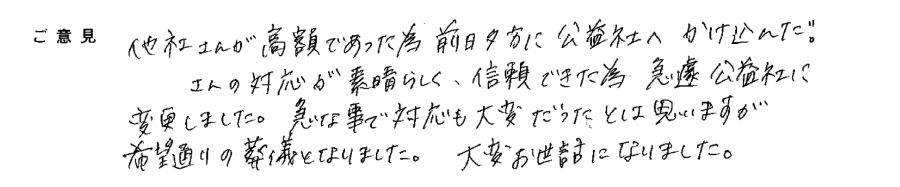 ご意見 他社さんが高額であった為前日夕方に公益社へかけ込んだ。
さんの対応が素晴らしく、信頼できた為急遽公益社に
変更しました。急な事で対応も大変だったとは思いますが
希望通りの葬儀となりました。大変お世話になりました。